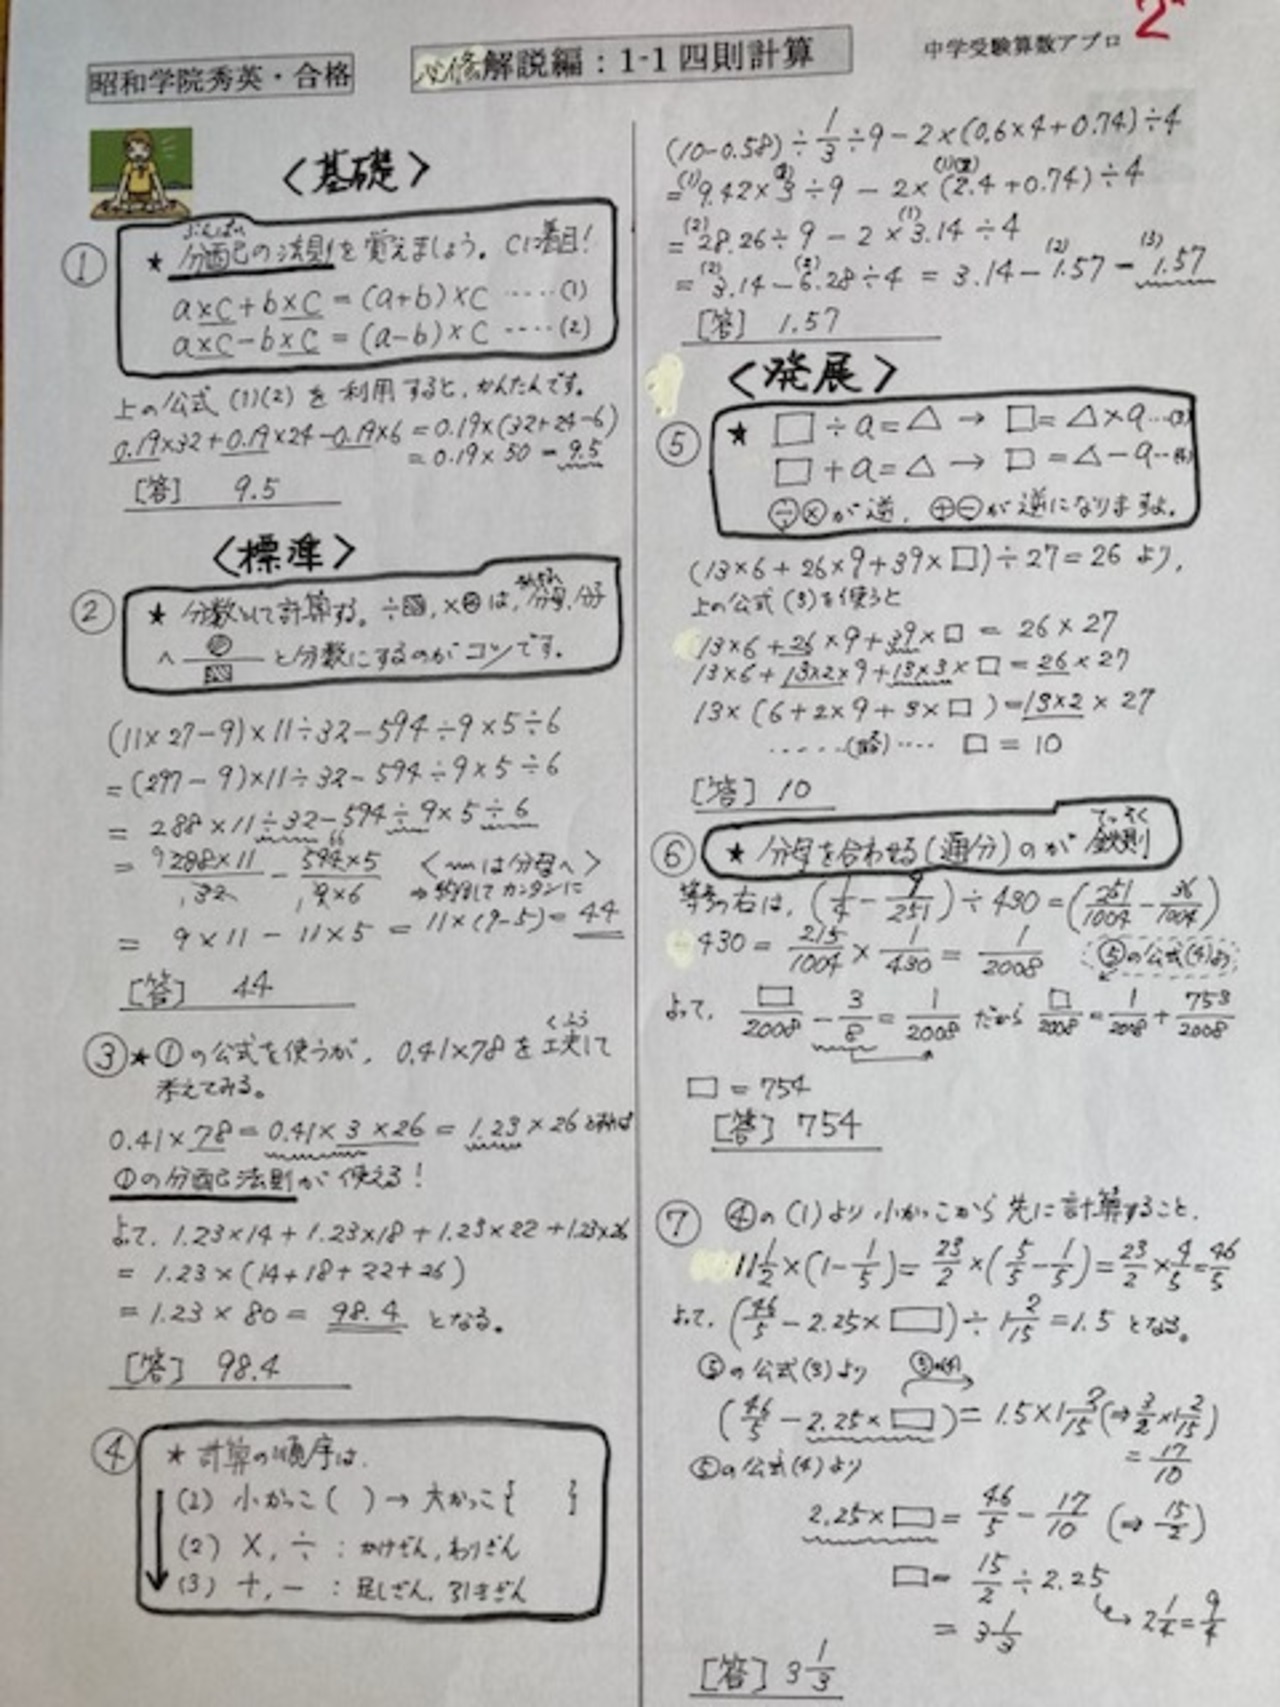 2
昭和学院秀英・合格
必修解説編：1-1 四則計算
中学受験算数アプロ
＜基礎＞
① ★ 分配の法則を覚えましょう。Cに着目！
ぶんぱい
a×C+b×C=(a+b)×C ‥‥(1)
a×C-b×C=(a-b)×C ‥‥(2)
上の公式(1)(2)を利用すると、かんたんです。
0.19×32+0.19×24-0.19×6=0.19×(32+24-6)
=0.19×50=9.5
[答] 9.5
＜標準＞
② ★ 分数として計算する。÷▨,×◍は、分母,分子
へ ◍/▨ と分数にするのがコツです。
(11×27-9)×11÷32-594÷9×5÷6
=(297-9)×11÷32-594÷9×5÷6
=288×11÷32-594÷9×5÷6
=288×11/32-594×5/9×6 ＜〰は分母へ＞
9 66 1 1 ⇒約してカンタンに
=9×11-11×5=11×(9-5)=44
[答] 44
③ ★①の公式を使うが、0.41×78を工夫して
くふう
考えてみる。
0.41×78=0.41×3×26=1.23×26とすれば
①の分配法則が使える！
よって、1.23×14+1.23×18+1.23×22+1.23×26
=1.23×(14+18+22+26)
=1.23×80=98.4 となる。
[答] 98.4
④ ★計算の順序は、
(1) 小かっこ( )→大かっこ{ }
(2) ×,÷：かけざん,わりざん
(3) +,-：足しざん,引きざん
(10-0.58)÷1/3÷9-2×(0.6×4+0.74)÷4
=(1)9.42×(2)3÷9-2×(1)(2)(2.4+0.74)÷4
=(2)28.26÷9-2×(1)3.14÷4
=(2)3.14-(2)6.28÷4=3.14-(2)1.57=(3)1.57
[答] 1.57
＜発展＞
⑤ ★ □÷a=△→□=△×a‥(3)
□+a=△→□=△-a‥(4)
÷×が逆、+-が逆になりますよ。
(13×6+26×9+39×□)÷27=26より、
上の公式(3)を使うと
13×6+26×9+39×□=26×27
13×6+13×2×9+13×3×□=26×27
13×(6+2×9+3×□)=13×2×27
‥‥‥(略)‥‥ □=10
[答] 10
⑥ ★分母を合わせる(通分)のが鉄則
てっそく
等号の右は、(1/4-9/251)÷430=(251/1004-36/1004)
÷430=215/1004×1/430=1/2008 ⑤の公式(4)より
よって、□/2008-3/8=1/2008だから□/2008=1/2008+753/2008
□=754
[答] 754
⑦ ④の(1)より小かっこから先に計算すること、
11 1/2×(1-1/5)=23/2×(5/5-1/5)=23/2×4/5=46/5
よって、(46/5-2.25×□)÷1 2/15=1.5となる。
⑤の公式(3)より
(46/5-2.25×□)=1.5×1 2/15(⇒3/2×1 2/15)
=17/10
⑤の公式(4)より
2.25×□=46/5-17/10 (⇒15/2)
□=15/2÷2.25
→2 1/4=9/4
=3 1/3
[答] 3 1/3